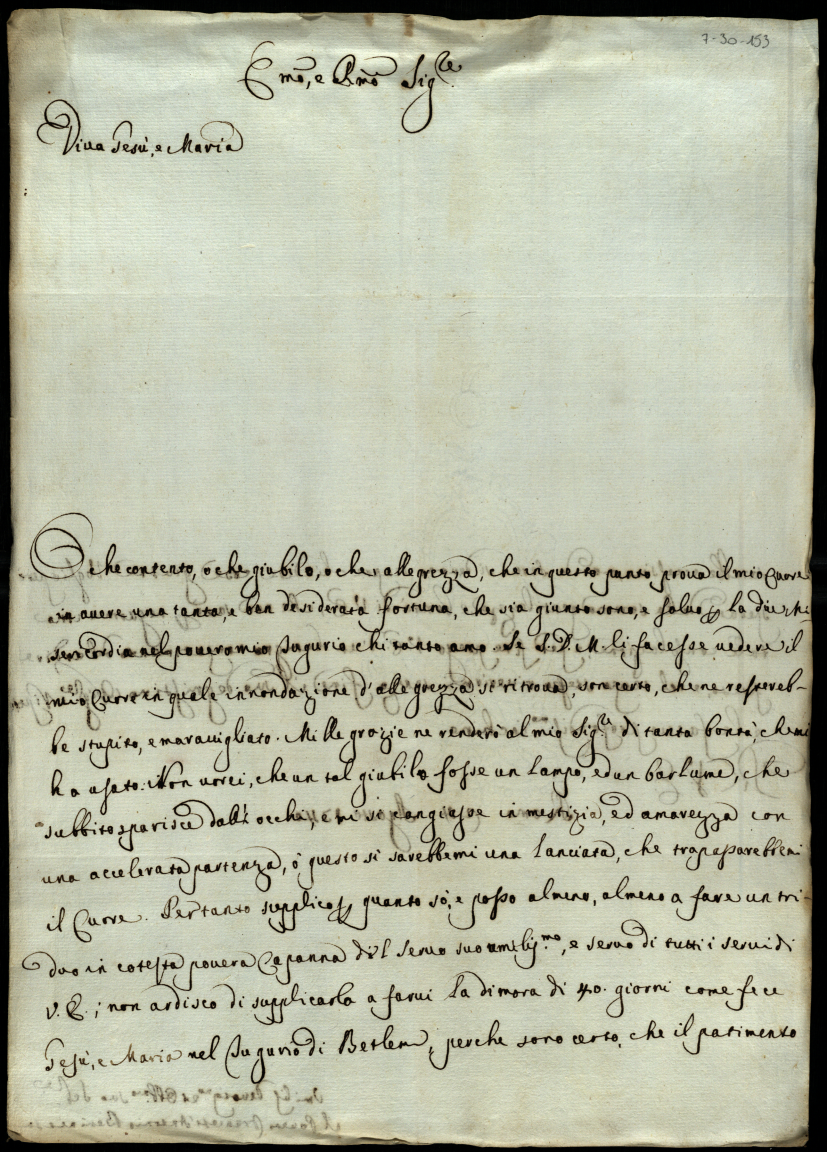 7-30-153
E.mo, e R.mo Sig.re
Viva Gesù, e Maria
O che contento, o che giubilo, o che allegrezza, che in questo punto prova il mio Cuore
in avere una tanta, e ben desiderata fortuna, che sia giunto sano, e salvo la di
sericordia nel povero mio Tugurio chi tanto amo. Se S.D.M. li facesse vedere il
mio Cuore in quale innondazione d'allegrezza si ritrova, son certo, che ne restereb-
be stupito, e maravigliato. Mille grazie ne renderò al mio Sig.re di tanta bontà, che mi
ha usato. Non vorei, che un tal giubilo fosse un lampo, ed un barlume, che
subbito sparisce dall'occhi, e mi si cangiasse in mestizia, ed amarezza con
una accelerata partenza, o questo si sarebbemi una lanciata, che trapassarebbemi
il Cuore. Pertanto supplico quanto sò, e posso almeno, almeno a fare un tri-
duo in cotesta povera Capanna del Servo suo umilis.mo, e servo di tutti i servi di
V. E.; non ardisco di supplicarla a farvi la dimora di 40. giorni come fece
Gesù, e Maria nel Tugurio di Betlem, perche sono certo, che il patimento